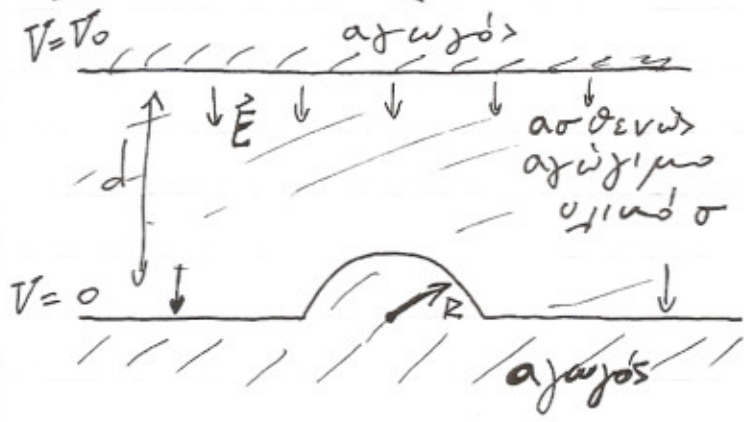 V=V₀
αγωγός
E⃗
ασθενώς
αγώγιμο
υλικό σ
d
V=0
R
αγωγός